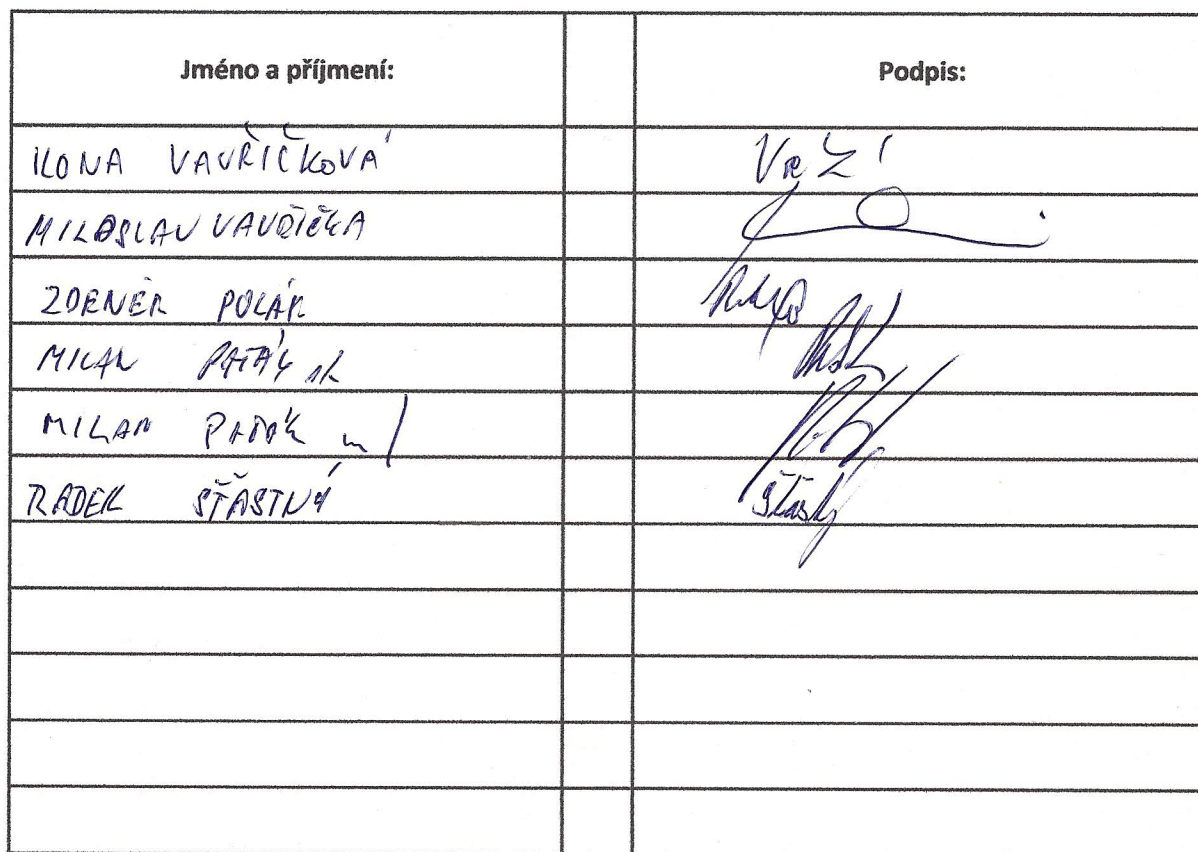 Jméno a příjmení: Podpis:
ILONA VAVŘIČKOVÁ
MILOSLAV VAVŘIČKA
ZDENĚK POLÁK
MILAN PATÁK
MILAN PATÁK
RADEK ŠŤASTNÝ Šťastný